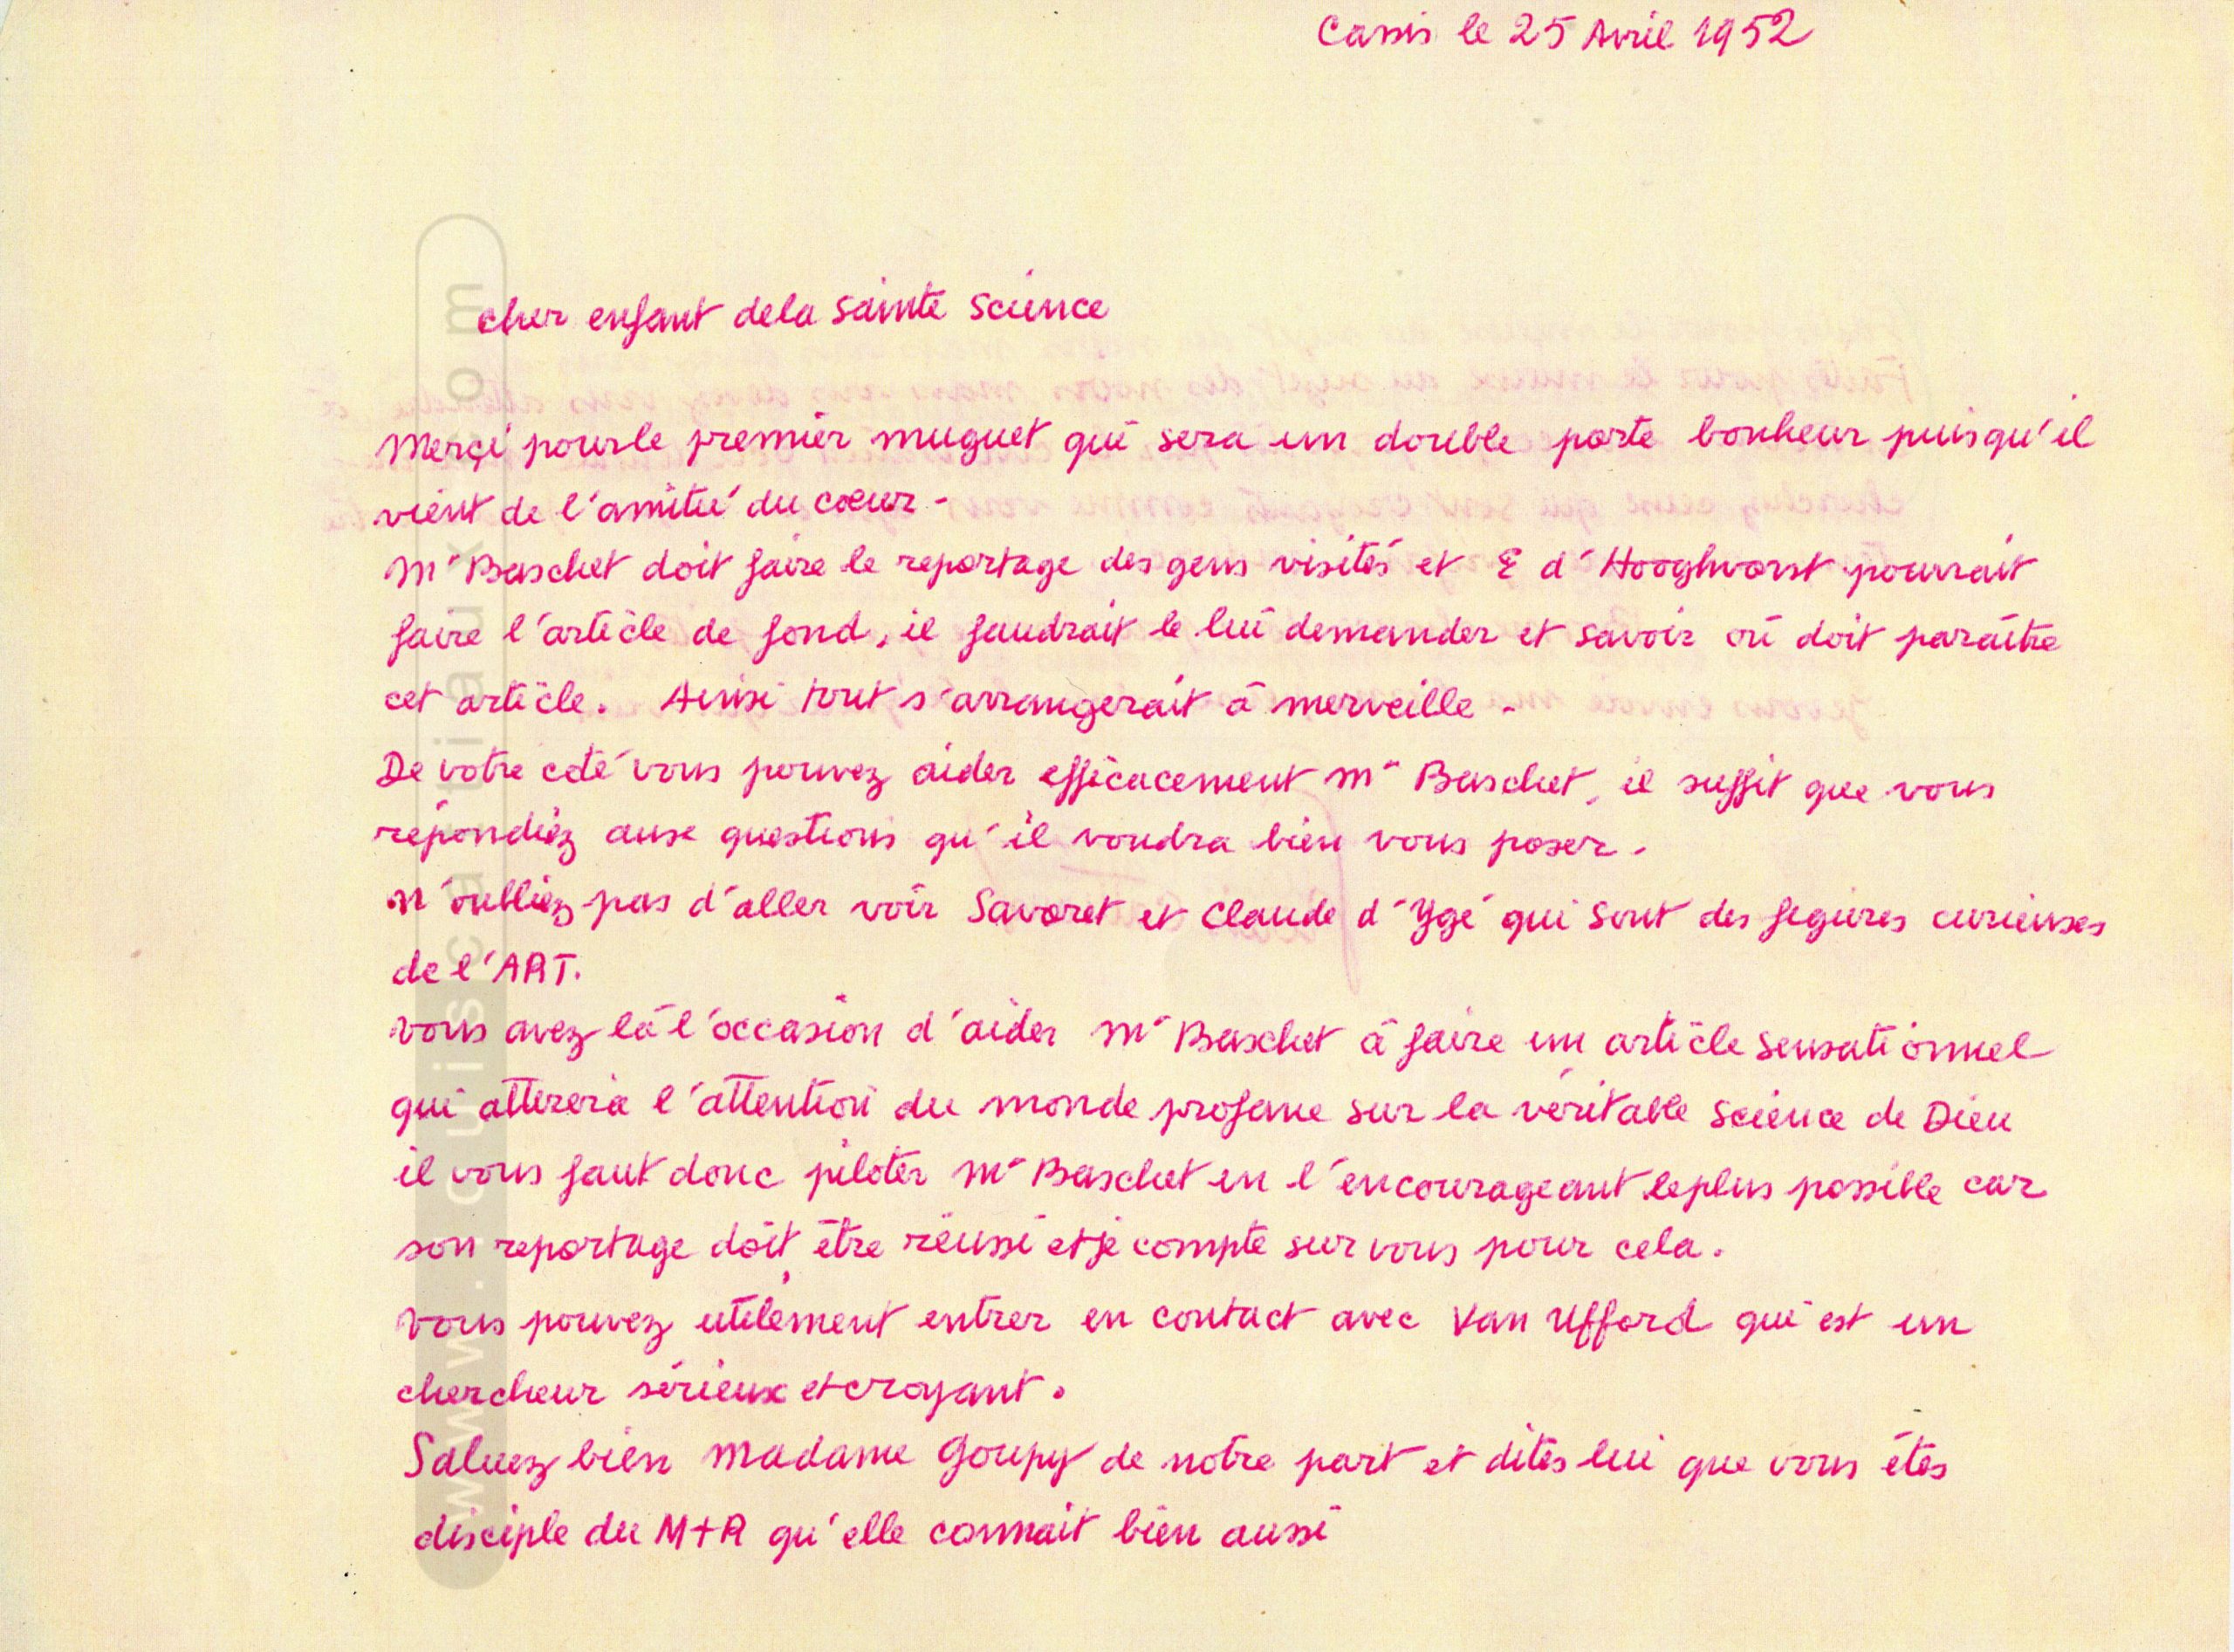 Cassis le 25 Avril 1952
cher enfant de la Sainte Science
Merçi pour le premier muguet qui sera un double porte bonheur puisqu'il
vient de l'amitié du cœur -
Mr Baschet doit faire le reportage des gens visités et E d'Hooghvorst pourrait
faire l'article de fond, il faudrait le lui demander et savoir où doit paraître
cet article. Ainsi tout s'arrangerait à merveille -
De votre coté vous pouvez aider efficacement Mr Baschet, il suffit que vous
répondiez aux questions qu'il voudra bien vous poser.
N'oubliez pas d'aller voir Savoret et Claude d'Ygé qui sont des figures curieuses
de l'ART.
vous avez là l'occasion d'aider Mr Baschet à faire un article sensationnel
qui attirera l'attention du monde profane sur la véritable science de Dieu
il vous faut donc piloter Mr Baschet en l'encourageant le plus possible car
son reportage doit être réussi et je compte sur vous pour cela.
Vous pouvez utilement entrer en contact avec Van Ufford qui est un
chercheur sérieux et croyant.
Saluez bien Madame Goupy de notre part et dites lui que vous êtes
disciple du M+R qu'elle connait bien aussi
www.louiscattiaux.com